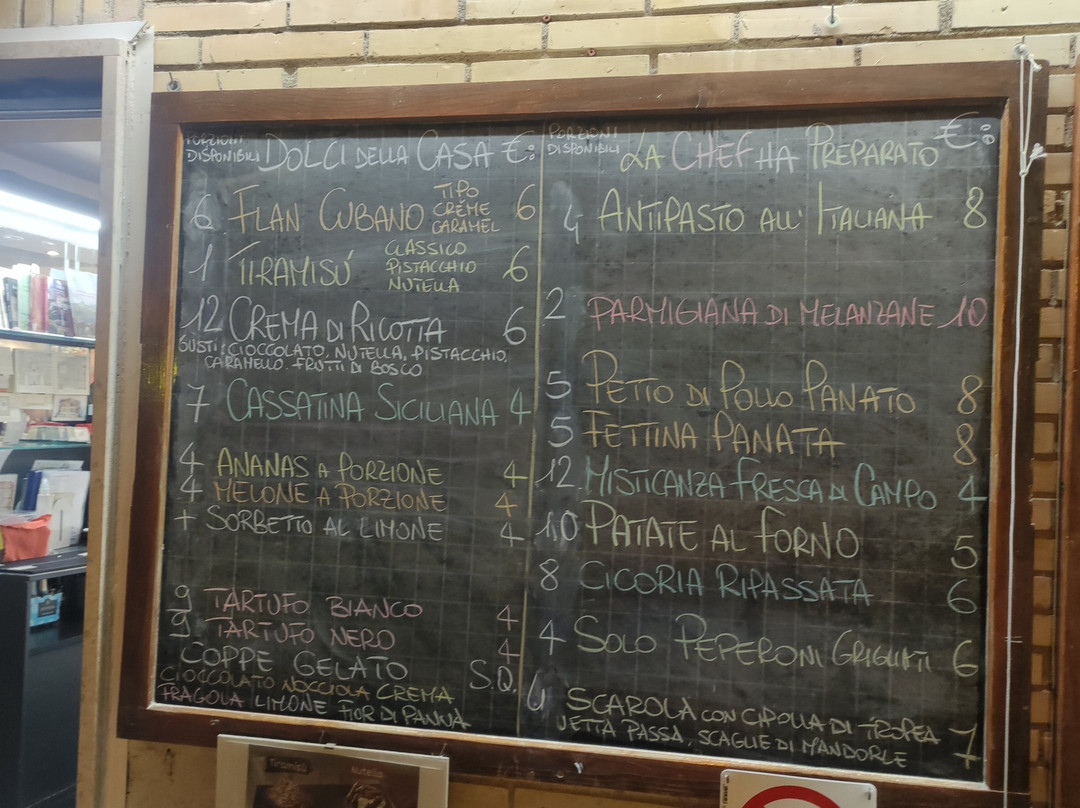 PORZIONI DISPONIBILI DOLCI DELLA CASA €:
6 FLAN CUBANO TIPO CRÉME CARAMEL 6
1 TIRAMISÚ CLASSICO PISTACCHIO NUTELLA 6
12 CREMA DI RICOTTA 6
GUSTI: CIOCCOLATO, NUTELLA, PISTACCHIO,
CARAMELLO. FRUTTI DI BOSCO
7 CASSATINA SICILIANA 4
4 ANANAS A PORZIONE 4
4 MELONE A PORZIONE 4
+ SORBETTO AL LIMONE 4
9 TARTUFO BIANCO 4
9 TARTUFO NERO 4
COPPE GELATO S.Q.
CIOCCOLATO NOCCIOLA CREMA
FRAGOLA LIMONE FIOR DI PANNA
PORZIONI DISPONIBILI LA CHEF HA PREPARATO €:
4 ANTIPASTO ALL' ITALIANA 8
2 PARMIGIANA DI MELANZANE 10
5 PETTO DI POLLO PANATO 8
5 FETTINA PANATA 8
12 MISTICANZA FRESCA DI CAMPO 4
10 PATATE AL FORNO 5
8 CICORIA RIPASSATA 6
4 SOLO PEPERONI GRIGLIATI 6
6 SCAROLA CON CIPOLLA DI TROPEA
UETTA PASSA, SCAGLIE DI MANDORLE 7
Tiramisù
Nutella